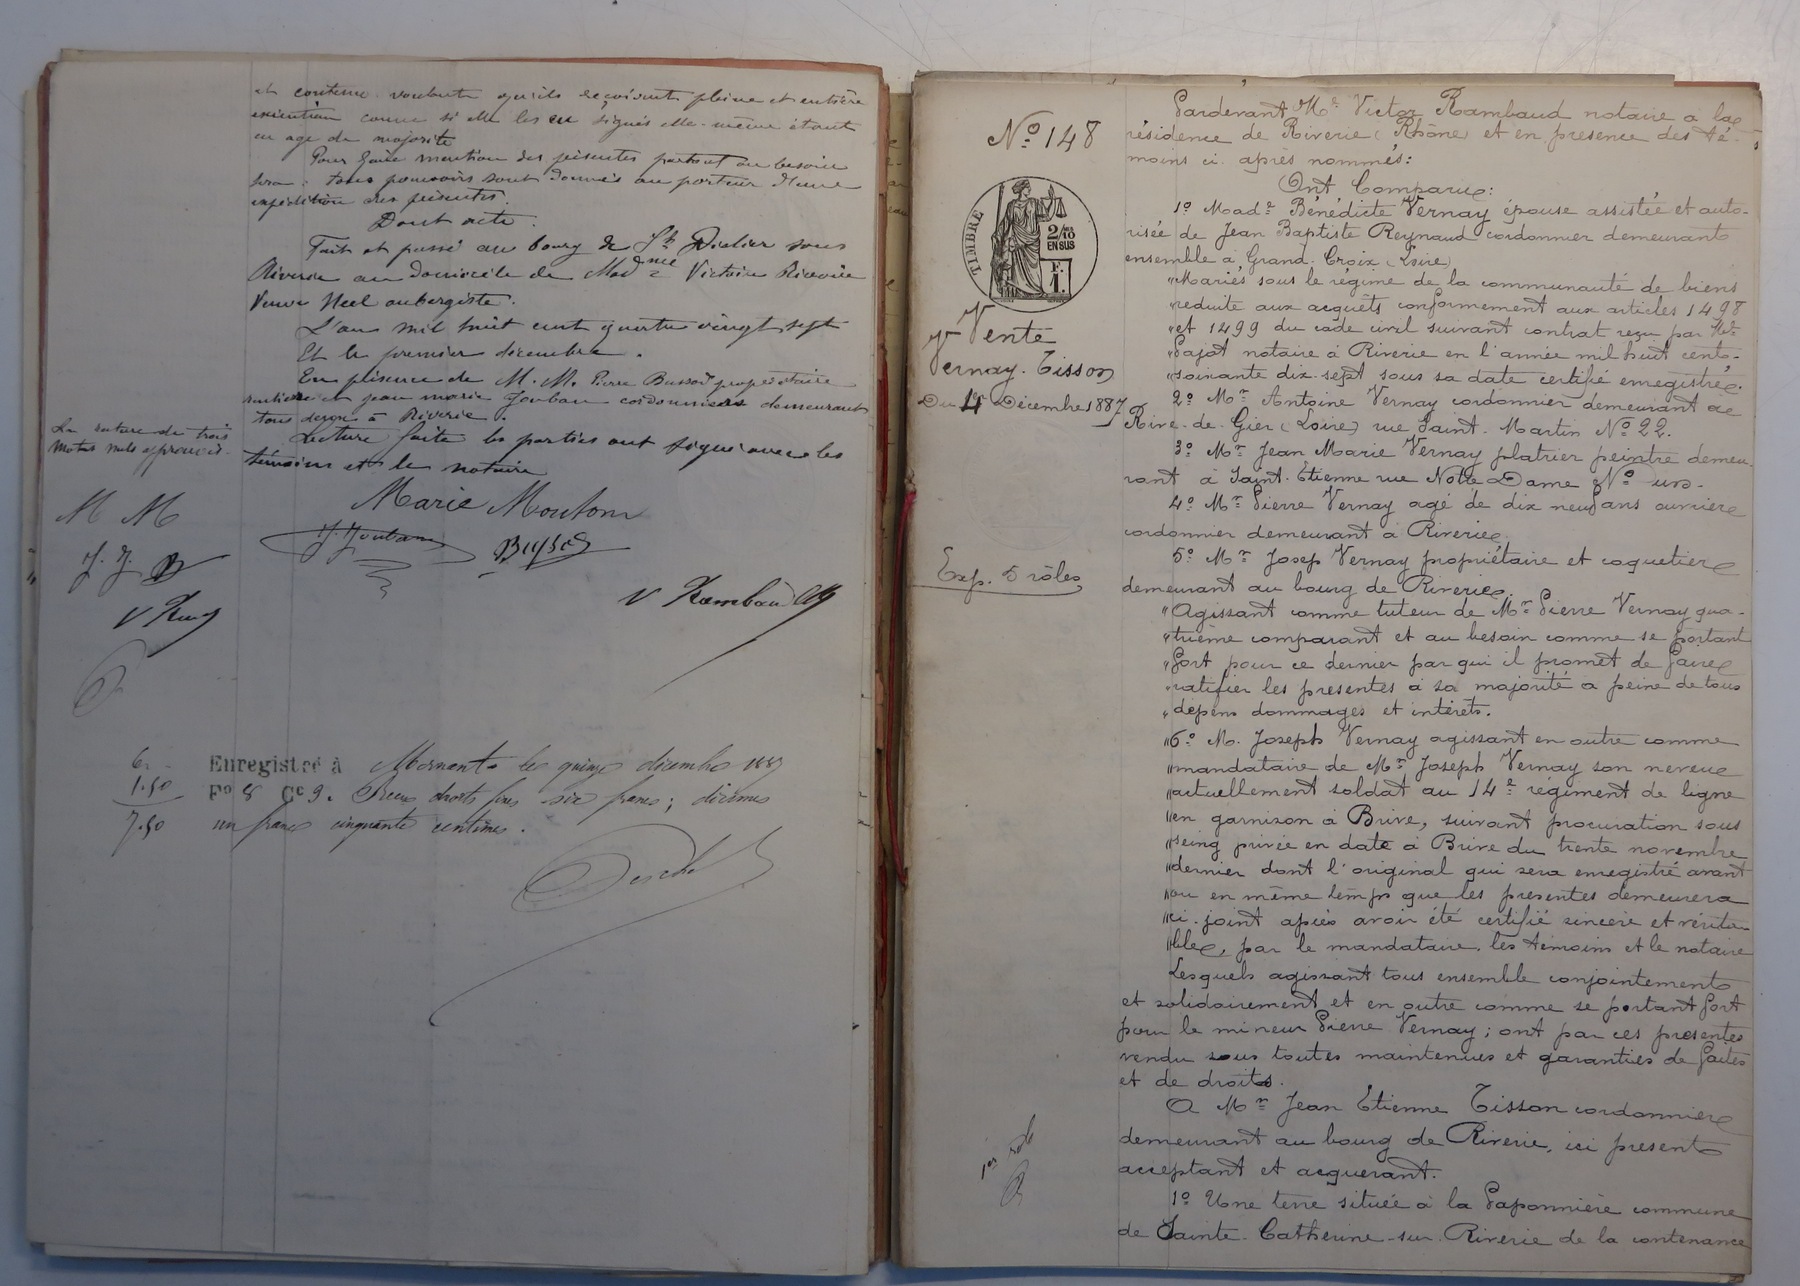 et contenu voulant qu'ils reçoivent pleine et entière
exécution comme si elle les eu signés elle-même étant
en age de majorité
Pour faire mention des présentes partout ou besoin
sera : tous pouvoirs sont donnés au porteur d'une
expédition des présentes.
Dont acte.
Fait et passé au bourg de St Didier sous
Riverie au domicile de Mad me Victoire
Veuve Néel aubergiste.
L'an mil huit cent quatre vingt sept
Et le premier décembre.
En présence de M. M. Pierre propriétaire
rentier et jean marie Jouban cordonniers demeurant
tous deux à Riverie.
Lecture faite les parties ont signé avec les
témoins et le notaire
La rature de trois
mots nuls approuvés.
Marie Moulom
M M
J. Joubam
J. J. B
V Rambaud
V Ram
6. -
1.50
7.50
Enregistré à Mornant le quinze décembre 1887
Fo 8 Ce 9. Reçu droits fixes six francs ; décimes
un franc cinquante centimes.
No 148
TIMBRE
2/10
EN SUS
F.
1.
Vente
Vernay. Tisson
Du 1er Décembre 1887
Exp. 5 rôles
1er rôle
Pardevant Me Victor Rambaud notaire a la
résidence de Riverie (Rhône) et en présence des té-
moins ci-après nommés :
Ont Comparu :
1o Made Bénédicte Vernay épouse assistée et auto-
risée de Jean Baptiste Reynaud cordonnier demeurant
ensemble à Grand. Croix (Loire)
"Mariés sous le régime de la communauté de biens
"réduite aux acquêts conformement aux articles 1498
"et 1499 du code civil suivant contrat reçu par Me
"Pajot notaire à Riverie en l'année mil huit cent-
"soixante dix-sept sous sa date certifié enregistré.
2o Mr Antoine Vernay cordonnier demeurant à
Rive-de-Gier (Loire) rue Saint-Martin No 22.
3o Mr Jean Marie Vernay platrier peintre demeu-
rant à Saint-Etienne rue Notre Dame No un.
4o Mr Pierre Vernay agé de dix neuf ans ouvrier
cordonnier demeurant à Riverie.
5o Mr Josep Vernay propriétaire et coquetier
demeurant au bourg de Riverie.
"Agissant comme tuteur de Mr Pierre Vernay qua-
"trième comparant et au besoin comme se portant
"fort pour ce dernier par qui il promet de faire
"ratifier les presentes à sa majorité a peine de tous
"depens dommages et intérets.
"6o M. Joseph Vernay agissant en outre comme
"mandataire de Mr Joseph Vernay son neveu
"actuellement soldat au 14e régiment de ligne
"en garnison à Brive, suivant procuration sous
"seing privée en date à Brive du trente novembre
"dernier dont l'original qui sera enregistré avant
"ou en même temps que les presentes demeurera
"ci-joint après avoir été certifié sincère et vérita-
"ble, par le mandataire, les témoins et le notaire
Lesquels agissant tous ensemble conjointement
et solidairement et en outre comme se portant fort
pour le mineur Pierre Vernay ; ont par ces presentes
vendu sous toutes maintenues et garanties de faits
et de droits.
A Mr Jean Etienne Tisson cordonnier
demeurant au bourg de Riverie, ici present
acceptant et acquerant.
1o Une terre située à la Paponnière commune
de Sainte-Catherine-sur-Riverie de la contenance